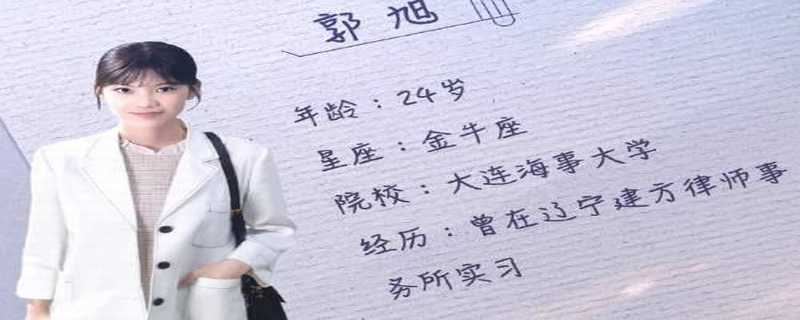 郭旭
年龄：24岁
星座：金牛座
院校：大连海事大学
经历：曾在辽宁建方律师事
务所实习